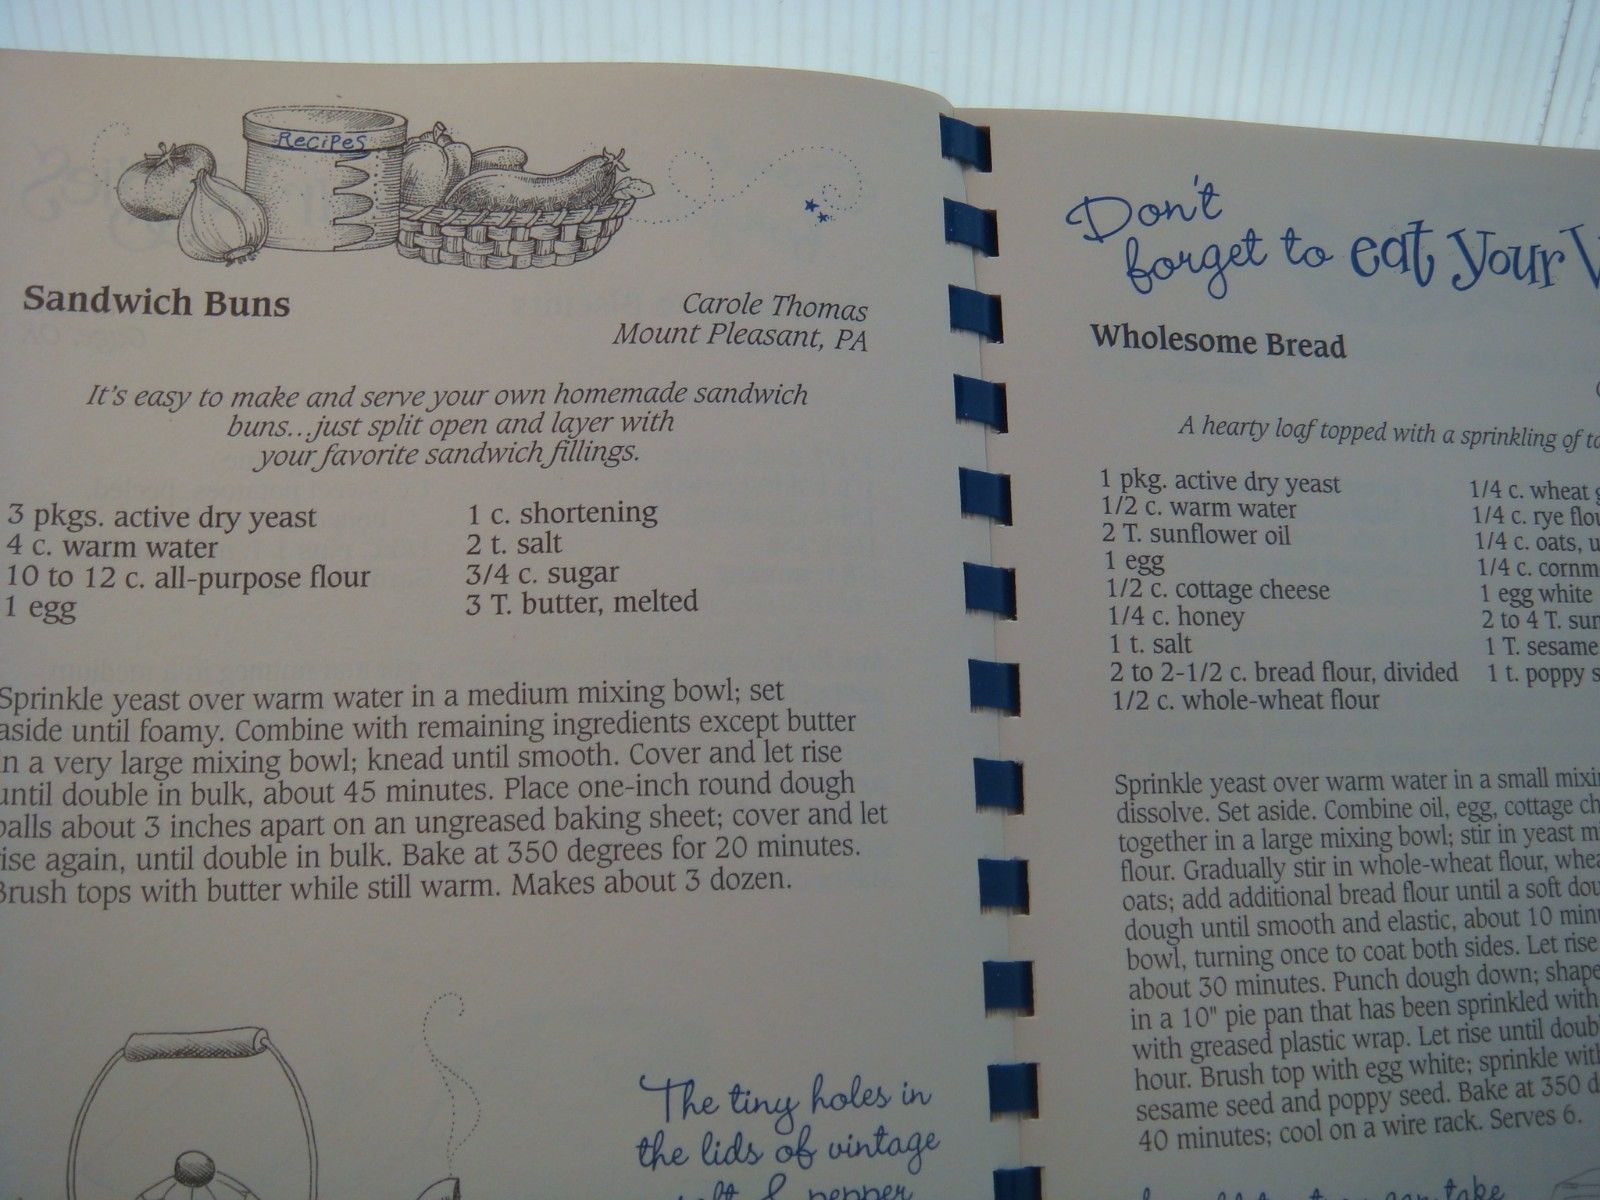 Recipes
Sandwich Buns
Carole Thomas
Mount Pleasant, PA
It's easy to make and serve your own homemade sandwich
buns...just split open and layer with
your favorite sandwich fillings.
3 pkgs. active dry yeast
4 c. warm water
10 to 12 c. all-purpose flour
1 egg
1 c. shortening
2 t. salt
3/4 c. sugar
3 T. butter, melted
Sprinkle yeast over warm water in a medium mixing bowl; set
aside until foamy. Combine with remaining ingredients except butter
in a very large mixing bowl; knead until smooth. Cover and let rise
until double in bulk, about 45 minutes. Place one-inch round dough
balls about 3 inches apart on an ungreased baking sheet; cover and let
rise again, until double in bulk. Bake at 350 degrees for 20 minutes.
Brush tops with butter while still warm. Makes about 3 dozen.
The tiny holes in
the lids of vintage
salt & pepper
Don't
forget to eat your
Wholesome Bread
A hearty loaf topped with a sprinkling of
1 pkg. active dry yeast
1/2 c. warm water
2 T. sunflower oil
1 egg
1/2 c. cottage cheese
1/4 c. honey
1 t. salt
2 to 2-1/2 c. bread flour, divided
1/2 c. whole-wheat flour
1/4 c. wheat
1/4 c. rye
1/4 c. oats,
1/4 c.
1 egg white
2 to 4 T.
1 T. sesame
1 t. poppy
Sprinkle yeast over warm water in a small
dissolve. Set aside. Combine oil, egg, cottage
together in a large mixing bowl; stir in yeast
flour. Gradually stir in whole-wheat flour,
oats; add additional bread flour until a soft
dough until smooth and elastic, about 10
bowl, turning once to coat both sides. Let rise
about 30 minutes. Punch dough down; shape
in a 10" pie pan that has been sprinkled with
with greased plastic wrap. Let rise until
hour. Brush top with egg white; sprinkle
sesame seed and poppy seed. Bake at 350
40 minutes; cool on a wire rack. Serves 6.